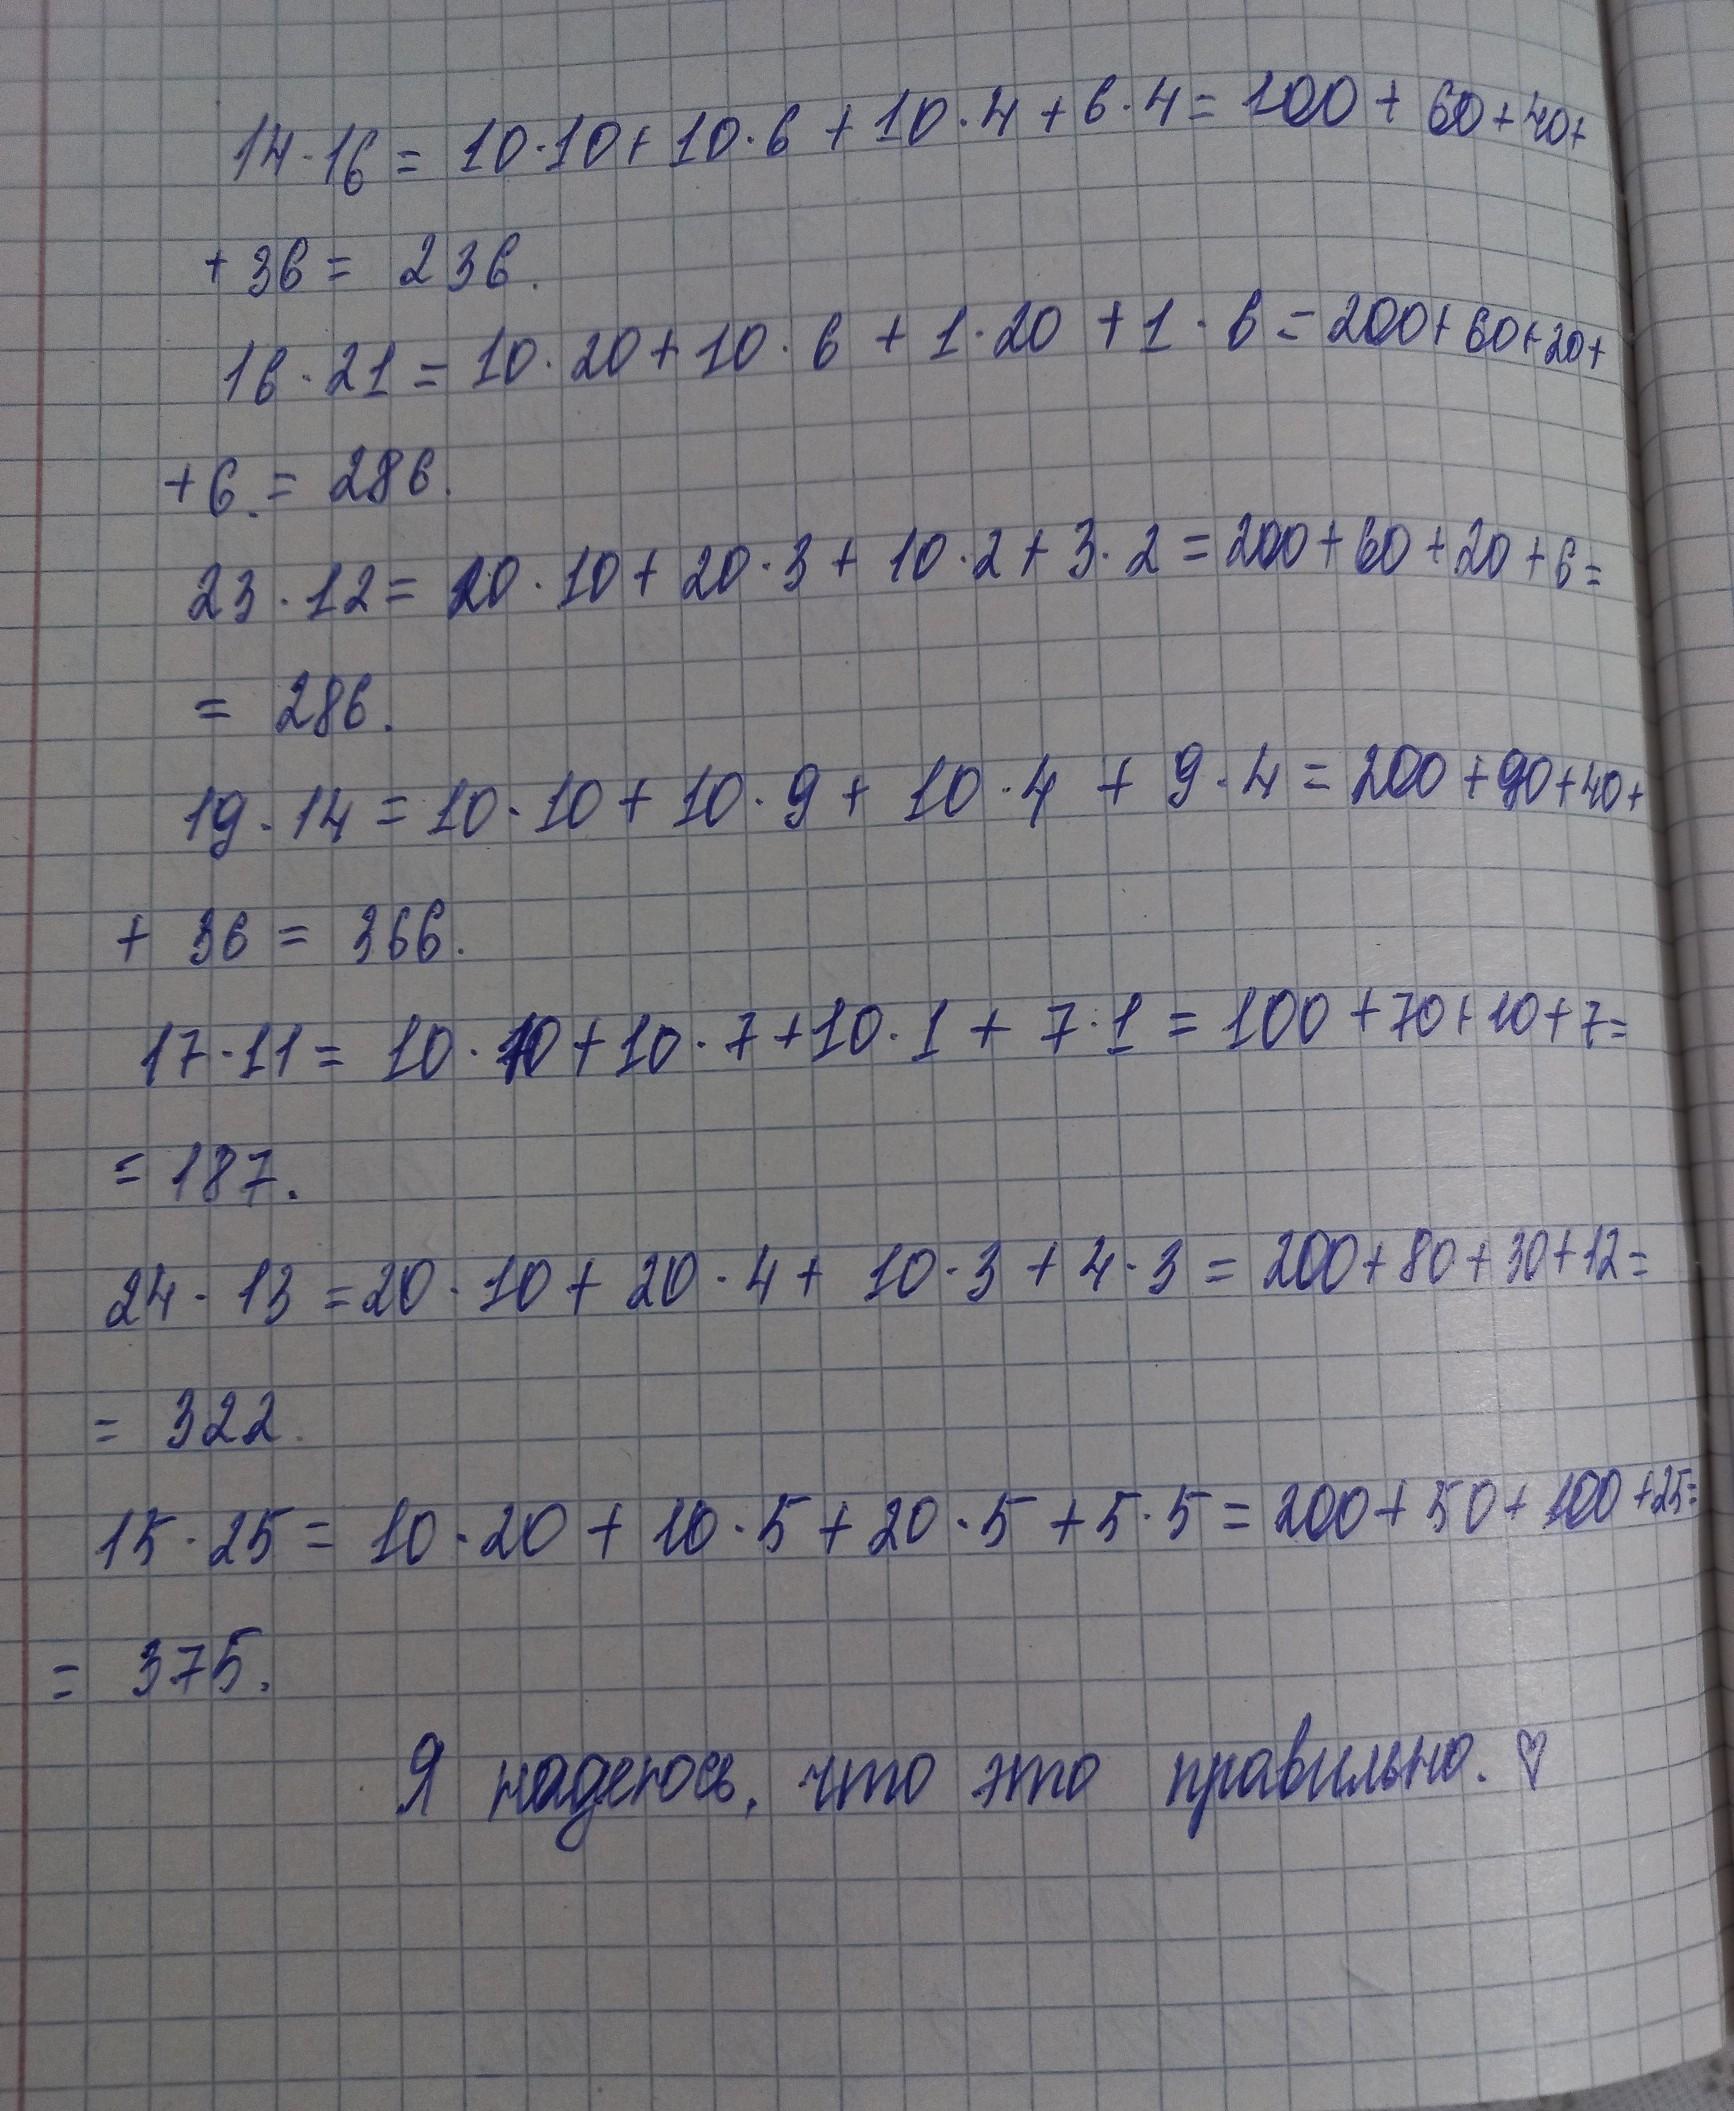 14·16 = 10·10+10·6+10·4+6·4= 100+60+40+
+36= 236.
16·21=10·20+10·6+1·20+1·6=200+60+20+
+6.= 286.
23·12= 20·10+20·3+10·2+3·2=200+60+20+6=
= 286.
19·14=10·10+10·9+10·4+9·4=200+90+40+
+ 36 = 366.
17·11= 10·10+10·7+10·1+7·1=100+70+10+7=
= 187.
24·13=20·10+20·4+10·3+4·3=200+80+30+12=
= 322.
15·25=10·20+10·5+20·5+5·5=200+50+100+25=
= 375.
Я надеюсь, что это правильно. ♡